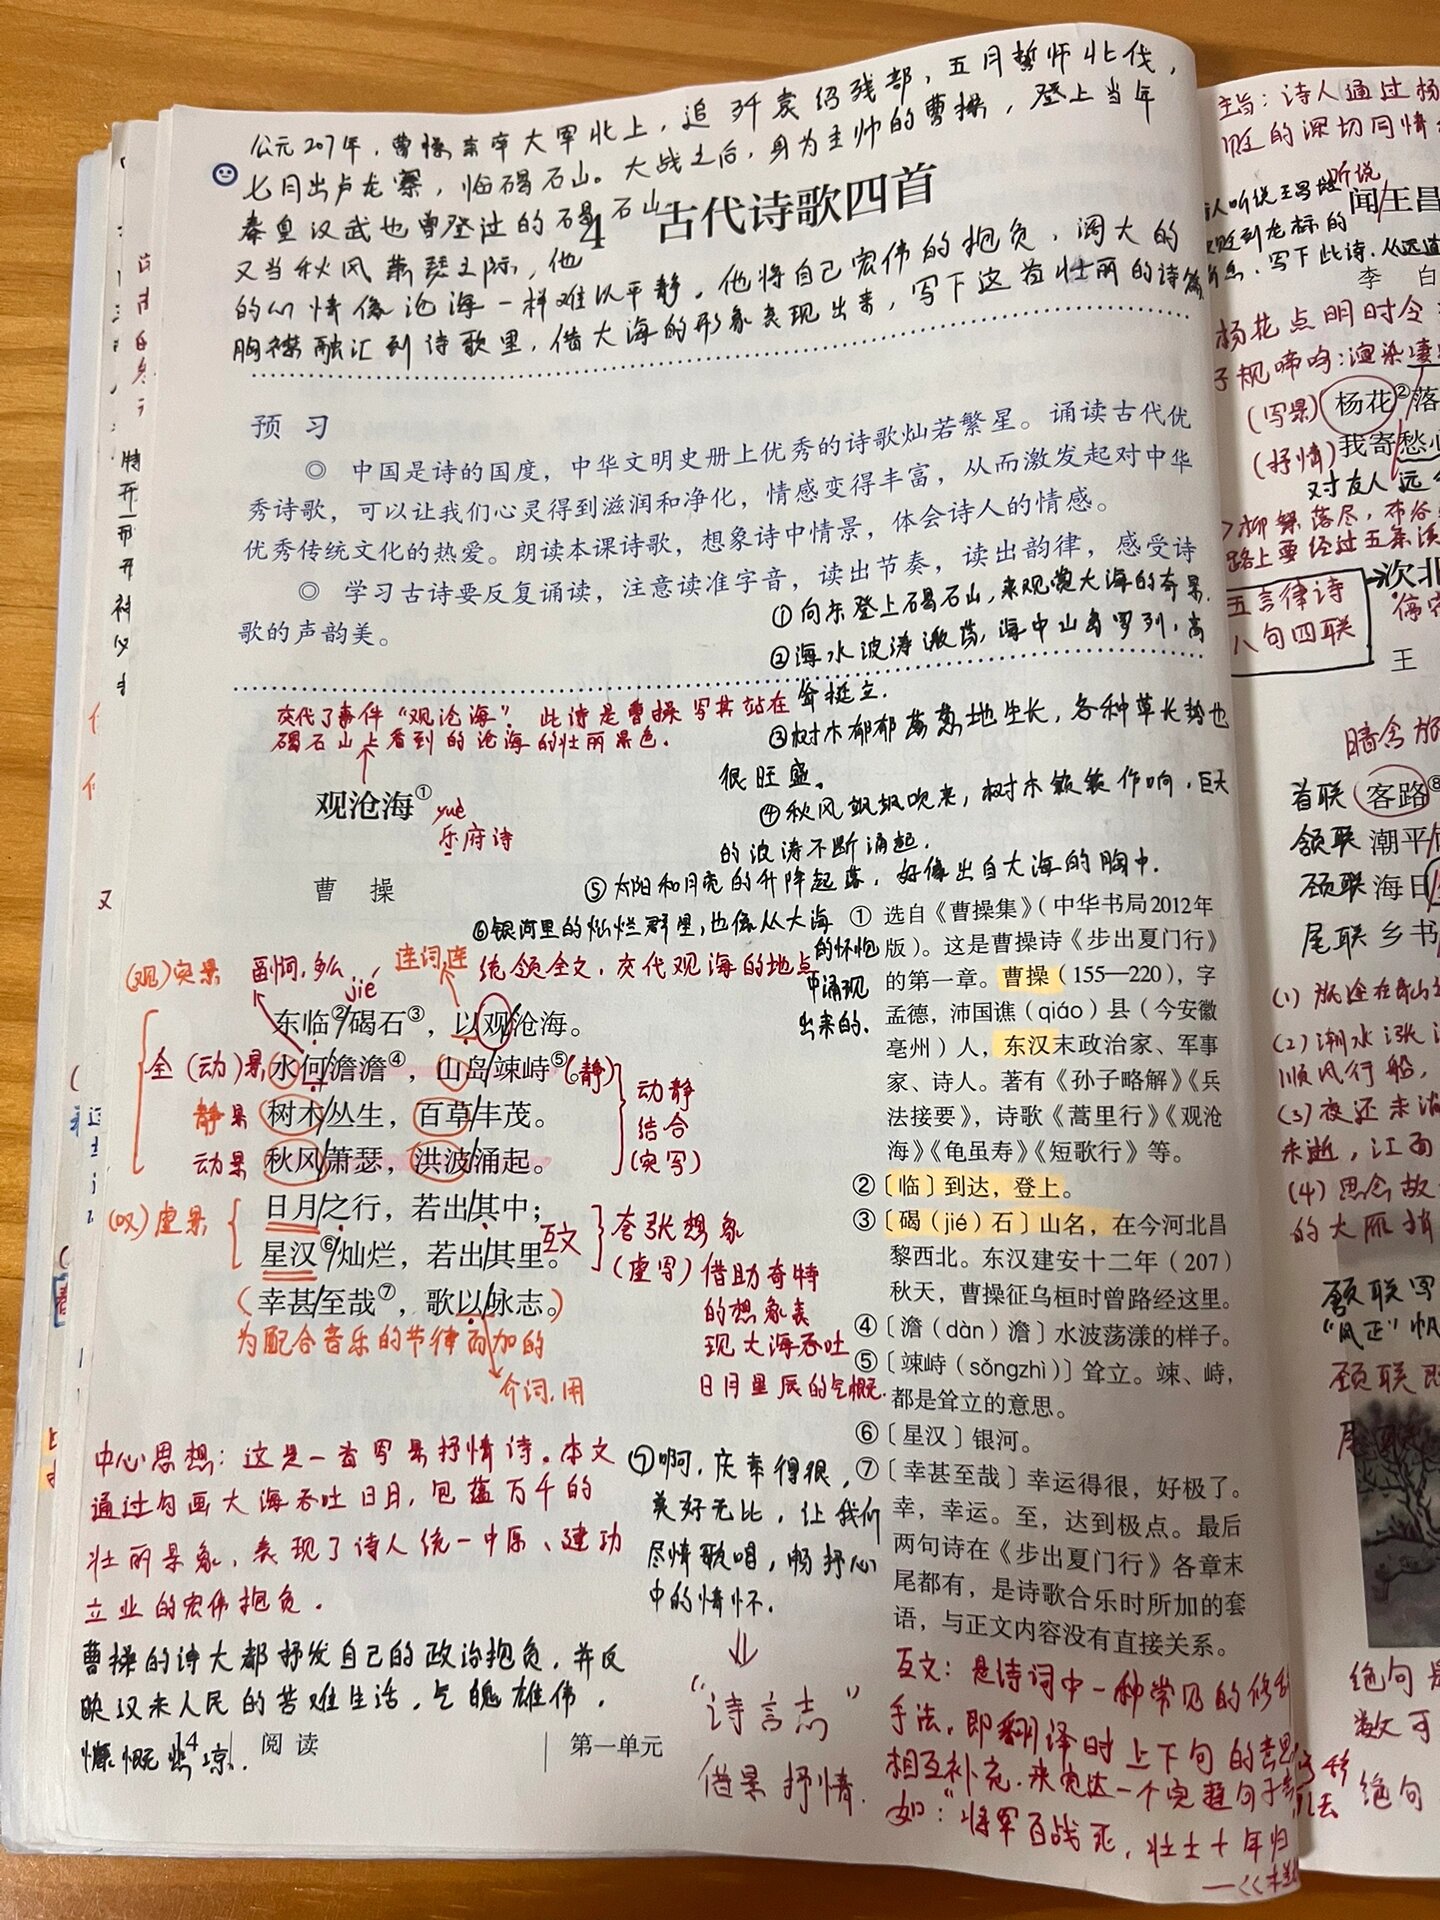 公元207年，曹操亲率大军北上，追歼袁绍残部，五月誓师北伐，
七月出卢龙寨，临碣石山。大战之后，身为主帅的曹操，登上当年
秦皇汉武也曾登过的碣石山
又当秋风萧瑟之际，他
的心情像沧海一样难以平静。他将自己宏伟的抱负，阔大的
胸襟融汇到诗歌里，借大海的形象表现出来，写下这首壮丽的诗篇
4 古代诗歌四首
预习
◎ 中国是诗的国度，中华文明史册上优秀的诗歌灿若繁星。诵读古代优
秀诗歌，可以让我们心灵得到滋润和净化，情感变得丰富，从而激发起对中华
优秀传统文化的热爱。朗读本课诗歌，想象诗中情景，体会诗人的情感。
◎ 学习古诗要反复诵读，注意读准字音，读出节奏，读出韵律，感受诗
歌的声韵美。
①向东登上碣石山，来观赏大海的奇景.
②海水波涛激荡，海中山岛罗列，高
耸挺立.
③树木郁郁葱葱地生长，各种草长势也
很旺盛。
④秋风飒飒吹来，树木飒飒作响，巨大
的波涛不断涌起.
⑤太阳和月亮的升降起落，好像出自大海的胸中.
⑥银河里的灿烂群星，也像从大海
的怀抱
中涌现
出来的.
交代了事件“观沧海”. 此诗是曹操写其站在
碣石山上看到的沧海的壮丽景色.
观沧海①
yuè
乐府诗
曹 操
(观)实景
副词,多么
jié
连词,连
统领全文,交代观海的地点
东临②碣石③，以观沧海。
全(动)景
水何澹澹④，山岛竦峙⑤
(静)
静景
树木丛生，百草丰茂。
动景
秋风萧瑟，洪波涌起。
动静
结合
(实写)
(叹)虚景
日月之行，若出其中；
星汉⑥灿烂，若出其里。
互文
夸张想象
(虚写)借助奇特
的想象表
现大海吞吐
日月星辰的气概.
(幸甚至哉⑦，歌以咏志。)
为配合音乐的节律而加的
介词.用
中心思想：这是一首写景抒情诗。本文
通过勾画大海吞吐日月，包蕴万千的
壮丽景象，表现了诗人统一中原、建功
立业的宏伟抱负.
曹操的诗大都抒发自己的政治抱负，并反
映汉末人民的苦难生活，气魄雄伟，
慷慨悲凉.
⑦啊,庆幸得很，
美好无比，让我们
尽情歌唱，畅抒心
中的情怀.
“诗言志”
借景抒情.
① 选自《曹操集》（中华书局2012年
版）。这是曹操诗《步出夏门行》
的第一章。曹操（155—220），字
孟德，沛国谯（qiáo）县（今安徽
亳州）人，东汉末政治家、军事
家、诗人。著有《孙子略解》《兵
法接要》，诗歌《蒿里行》《观沧
海》《龟虽寿》《短歌行》等。
②〔临〕到达，登上。
③〔碣（jié）石〕山名，在今河北昌
黎西北。东汉建安十二年（207）
秋天，曹操征乌桓时曾路经这里。
④〔澹（dàn）澹〕水波荡漾的样子。
⑤〔竦峙（sǒngzhì）〕耸立。竦、峙，
都是耸立的意思。
⑥〔星汉〕银河。
⑦〔幸甚至哉〕幸运得很，好极了。
幸，幸运。至，达到极点。最后
两句诗在《步出夏门行》各章末
尾都有，是诗歌合乐时所加的套
语，与正文内容没有直接关系。
互文：是诗词中一种常见的修辞
手法，即翻译时上下句的意思
相互补充，来表达一个完整句子
如：“将军百战死，壮士十年归
——《木兰
14 阅读 第一单元
主旨：诗人通过杨
贬的深切同情
听说
闻王昌
写下此诗.从远道
李 白
杨花点明时令
子规啼鸣：渲染凄
(写景)
杨花②落
(抒情)
我寄愁心
对友人远
柳絮落尽，布谷
路上要经过五条溪
五言律诗
八句四联
次北
停宿
王
暗含旅
首联 客路⑧
颔联 潮平
颈联 海日
尾联 乡书
(1)旅途在青山
(2)潮水涨
顺风行船，
(3)夜还未消
未逝，江面
(4)思念故
的大雁捎
颔联写
“风正”帆
颈联
绝句是
数可
绝句